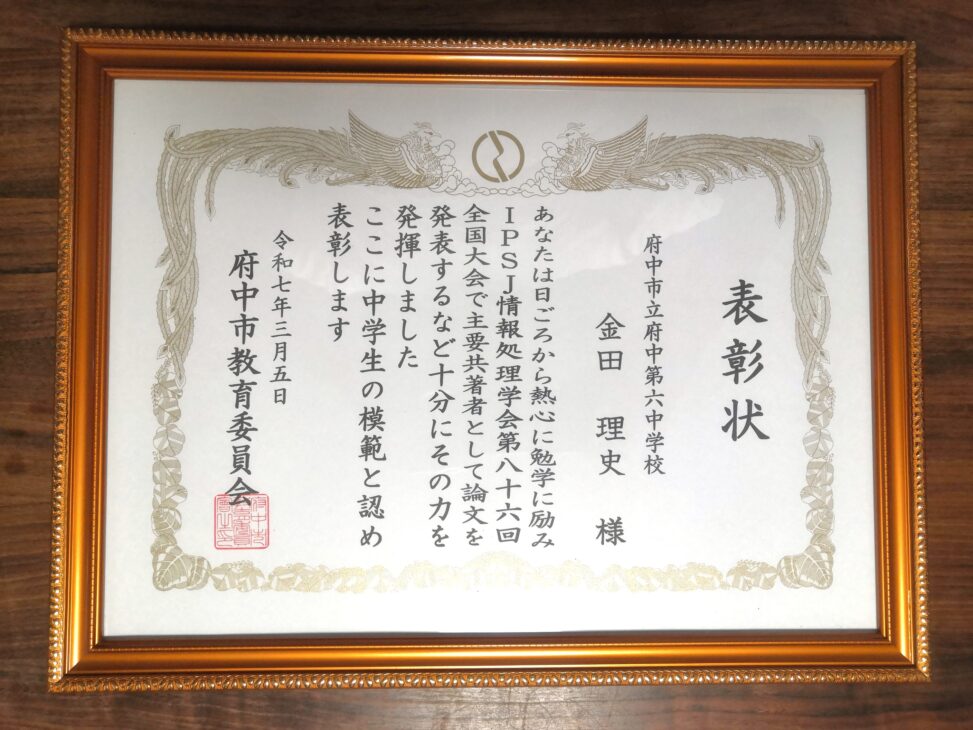 表彰状
府中市立府中第六中学校
金田 理史 様
あなたは日ごろから熱心に勉学に励み
IPSJ情報処理学会第八十六回
全国大会で主要共著者として論文を
発表するなど十分にその力を
発揮しました
ここに中学生の模範と認め
表彰します
令和七年三月五日
府中市教育委員会